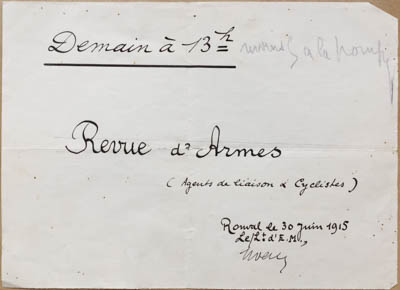 Demain à 13h à la
Revue d'Armes
(Agents de liaison & Cyclistes)
Rouval le 30 Juin 1915
Le Lt d'E.M.,